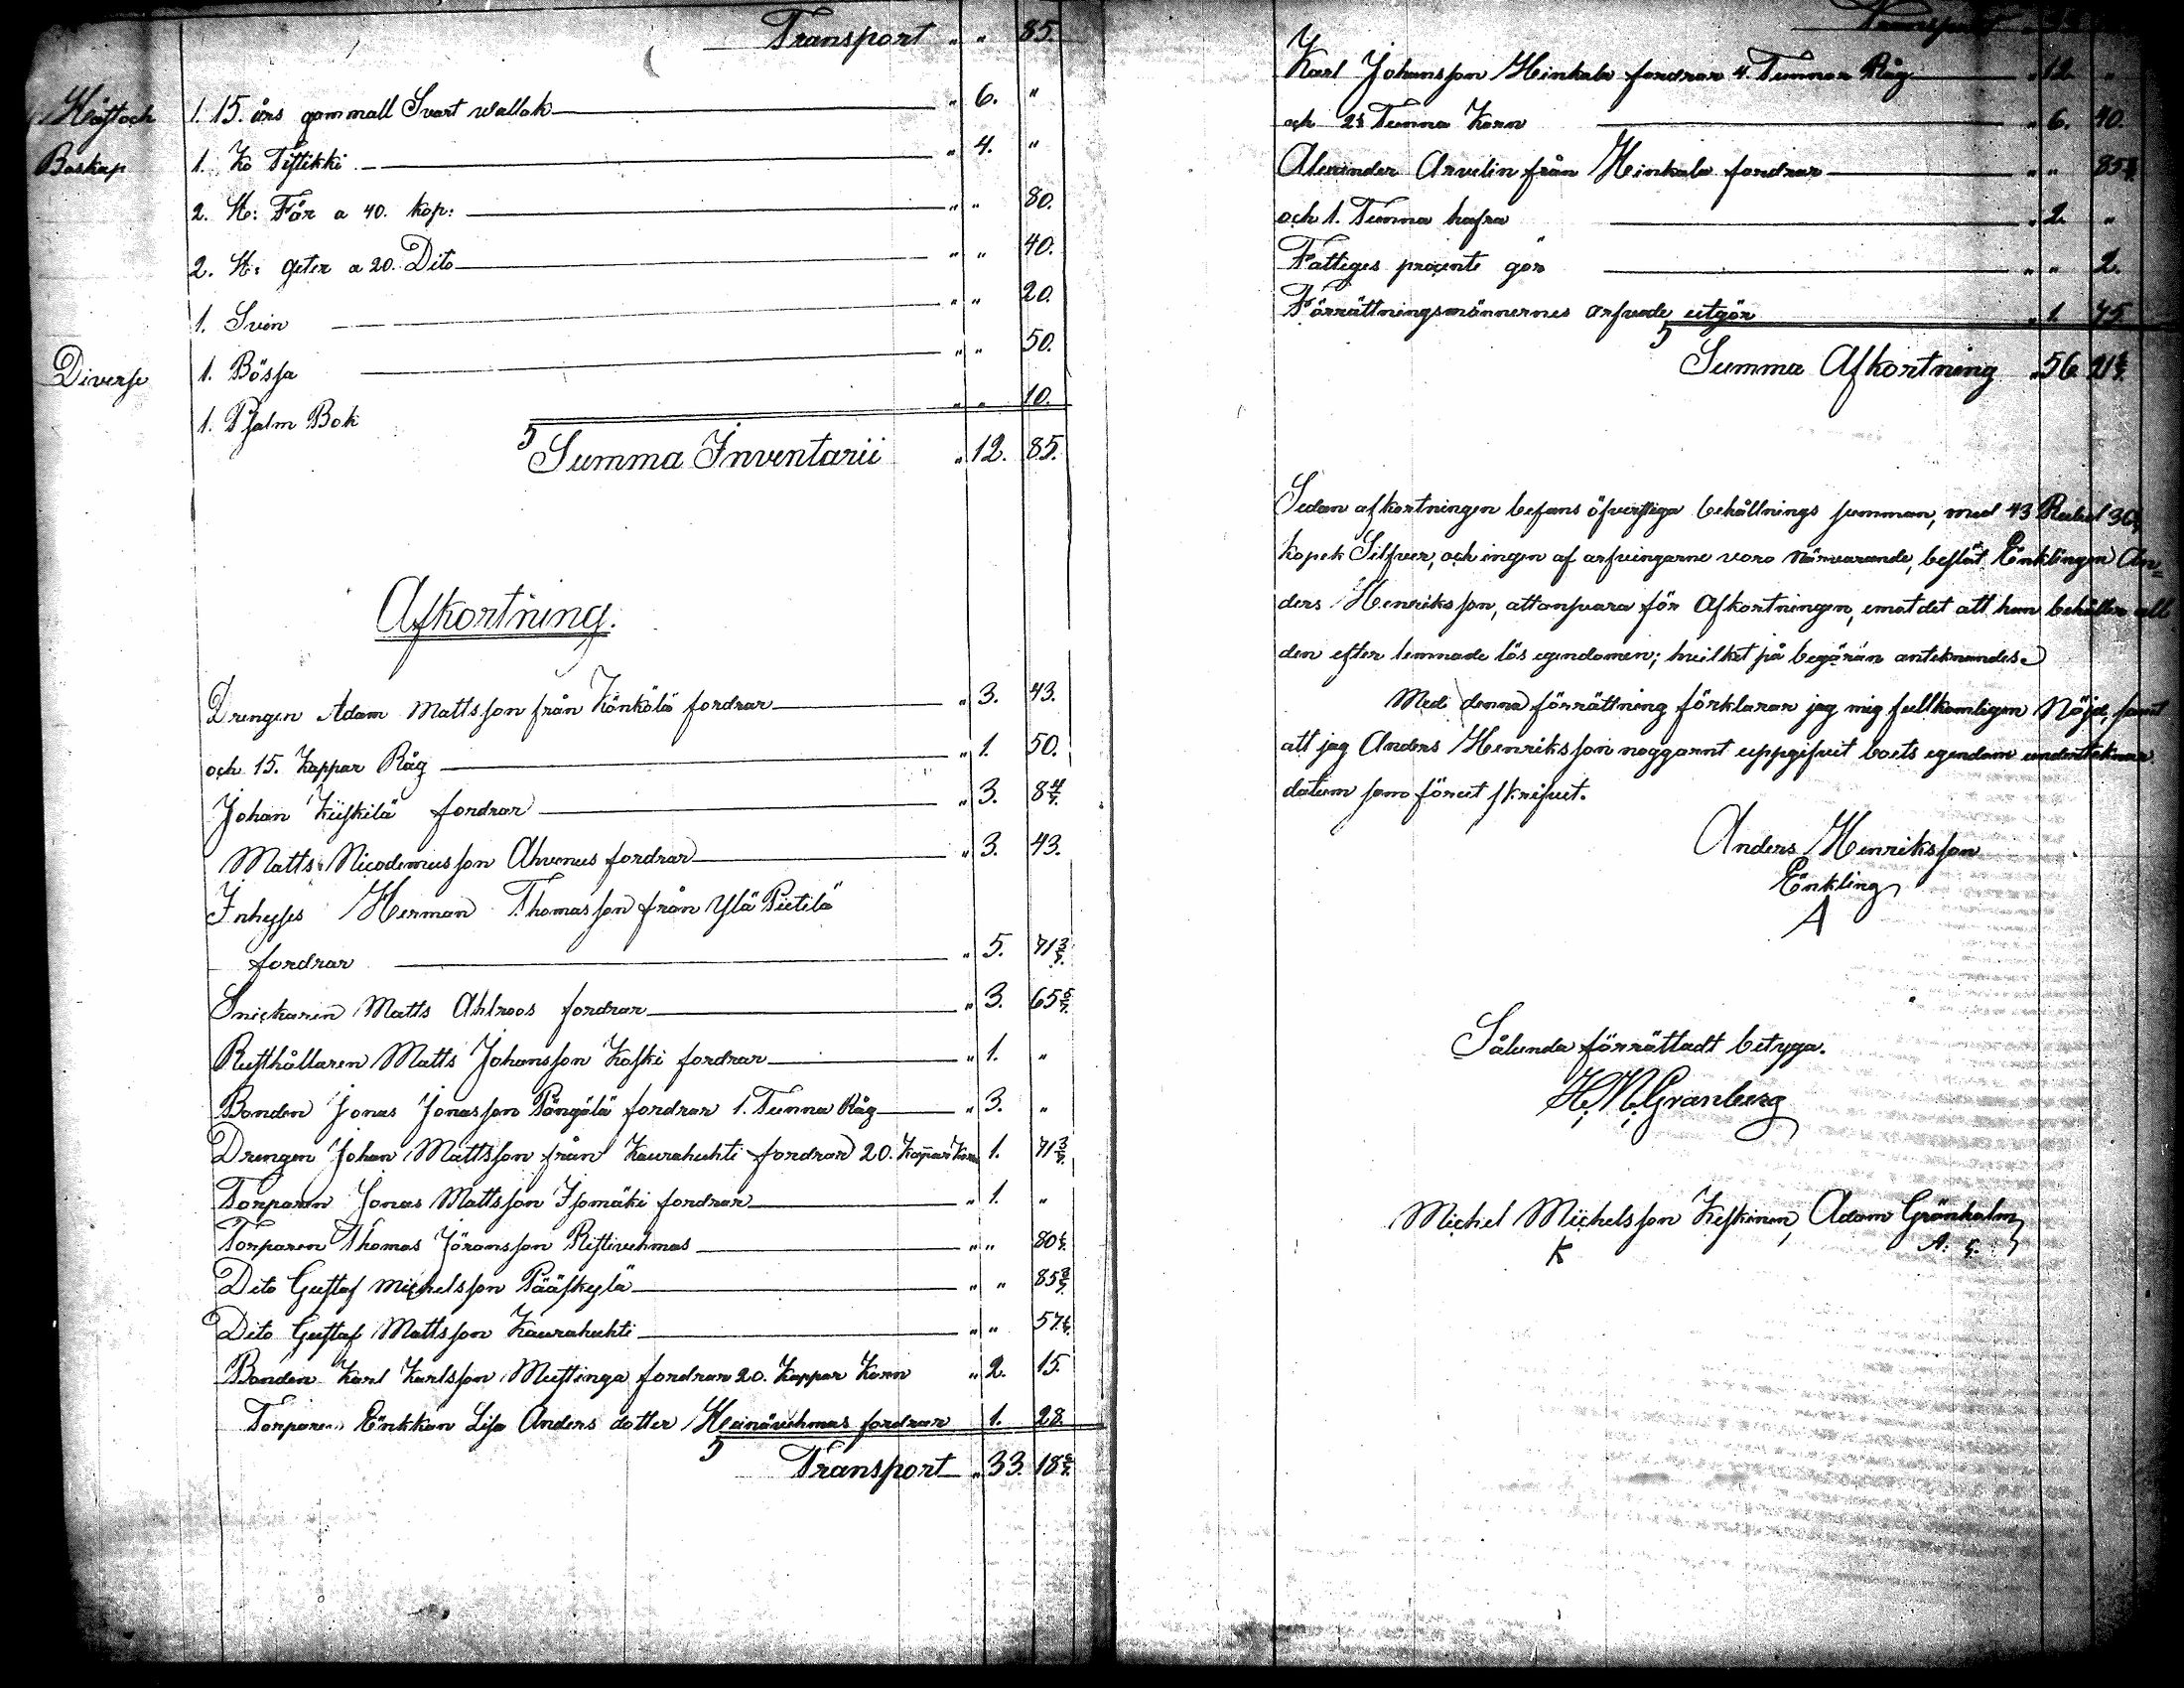 Transport " " 85.
Häst och 1. 15. års gammall Svart wallak " 6. "
Boskap 1. Ko Tistikki " 4. "
2. St: Får a 40. kop: " " 80.
2. St: geter a 20. Dito " " 40.
1. Svin " " 20.
Diverse 1. Bössa " " 50.
1. Psalm Bok " " 10.
Summa Inventarii " 12. 85.
Afkortning.
Drengen Adam Mattsson från Könkölä fordrar " 3. 43.
och 15. Kappar Råg " 1. 50.
Johan Kiiskilä fordrar " 3. 8 4/7.
Matts Nicodemusson Ahvenus fordrar " 3. 43.
Inhyses Herman Thomasson från Ylä Pietilä
fordrar " 5. 71 3/7.
Snickaren Matts Ahlroos fordrar " 3. 65 5/7.
Rusthållaren Matts Johansson Kaski fordrar " 1. "
Bonden Jonas Jonasson Pöngölä fordrar 1. Tunna Råg " 3. "
Drengen Johan Mattsson från Kaurahuhti fordrar 20. Kappar Korn 1. 71 3/7.
Torparen Jonas Mattsson Isomäki fordrar " 1. "
Torparen Thomas Jöransson Ristivehmas " " 80
Dito Gustaf Michelsson Pääskylä " " 85
Dito Gustaf Mattsson Kaurahuhti " " 57
Bonden Karl Karlsson Mustinga fordrar 20. Kappar Korn " 2. 15.
Torpare Enkkan Lisa Anders dotter Heinävehmas fordrar 1. 28
Transport " 33. 18
Transport
Karl Johansson Heinkala fordrar 4. Tunnor Råg " 12 "
och Tunna Korn " 6. 40.
Alexander Arvelin från Heinkala fordrar " " 85
och 1. Tunna hafra " 2 "
Fattiges procente gör " " 2.
Förrättningsmännernes arfvode utgör " 1. 75.
Summa Afkortning " 56 21
Sedan afkortningen befans öfverstiga behållnings summan, med 43 Rubel 36
kopek Silfver, och ingen af arfvingarne voro närvarande, beslöt Enklingen An=
ders Henriksson, att ansvara för Afkortningen, emot det att han behåller all
den efter lemnade lös egendomen; hvilket på begäran anteknandes.
Med denna förrättning förklarar jag mig fullkomligen Nöjd, samt
att jag Anders Henriksson noggarnt uppgifvit boets egendom underteknar
datum som förut skrifvit.
Anders Henriksson
Enkling
A
Sålunda förrättadt betyga.
H. N. Granberg
Michel Michelsson Keskinen, Adam Grönholm
K A: G: